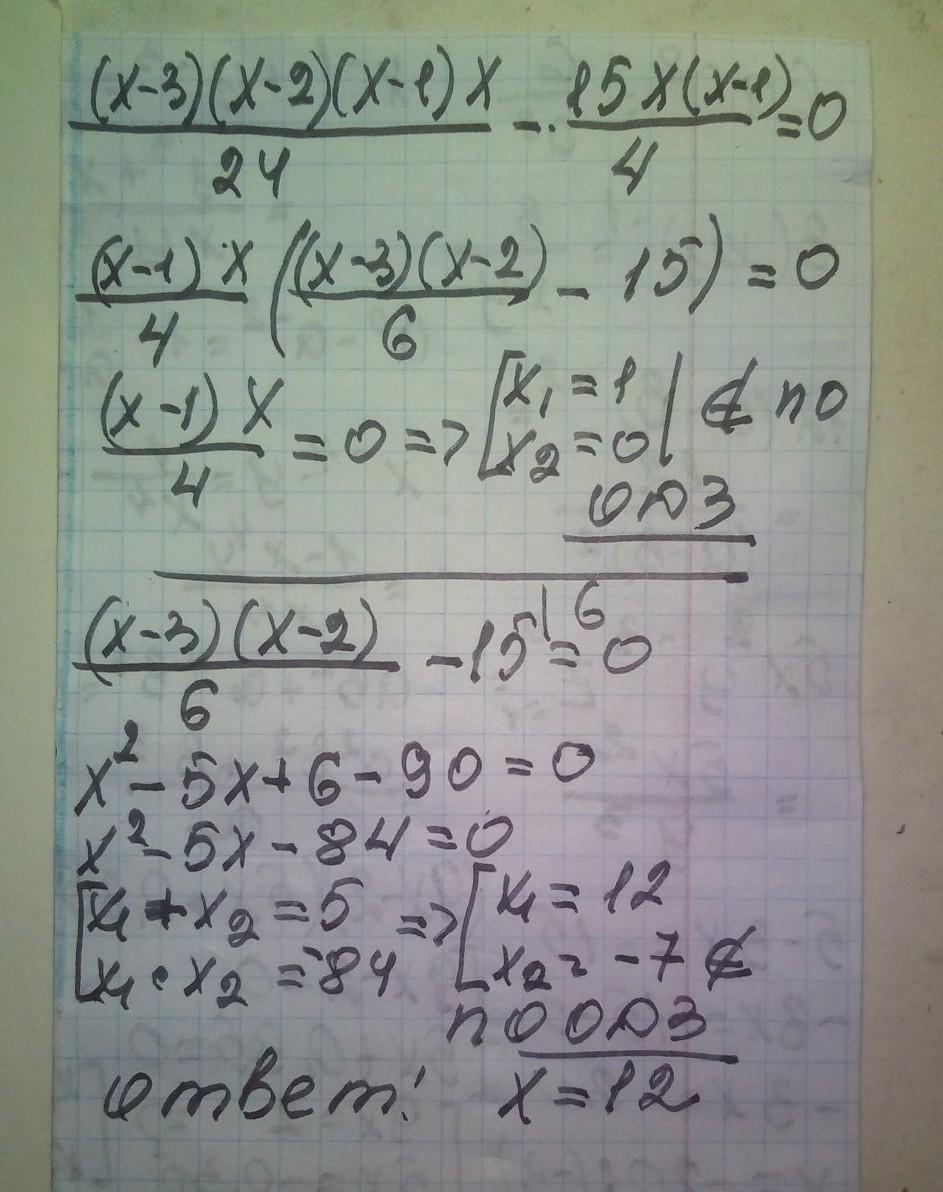 (x-3)(x-2)(x-1)x/24 - 15x(x-1)/4 = 0
(x-1)x/4 ((x-3)(x-2)/6 - 15) = 0
(x-1)x/4 = 0 => [x₁ = 1 | ∉ по
x₂ = 0 |
ОДЗ
(x-3)(x-2)/6 - 15 = 0 | 6
x² - 5x + 6 - 90 = 0
x² - 5x - 84 = 0
[x₁ + x₂ = 5 => [x₁ = 12
x₁ · x₂ = -84 x₂ = -7 ∉
по ОДЗ
ответ: x = 12